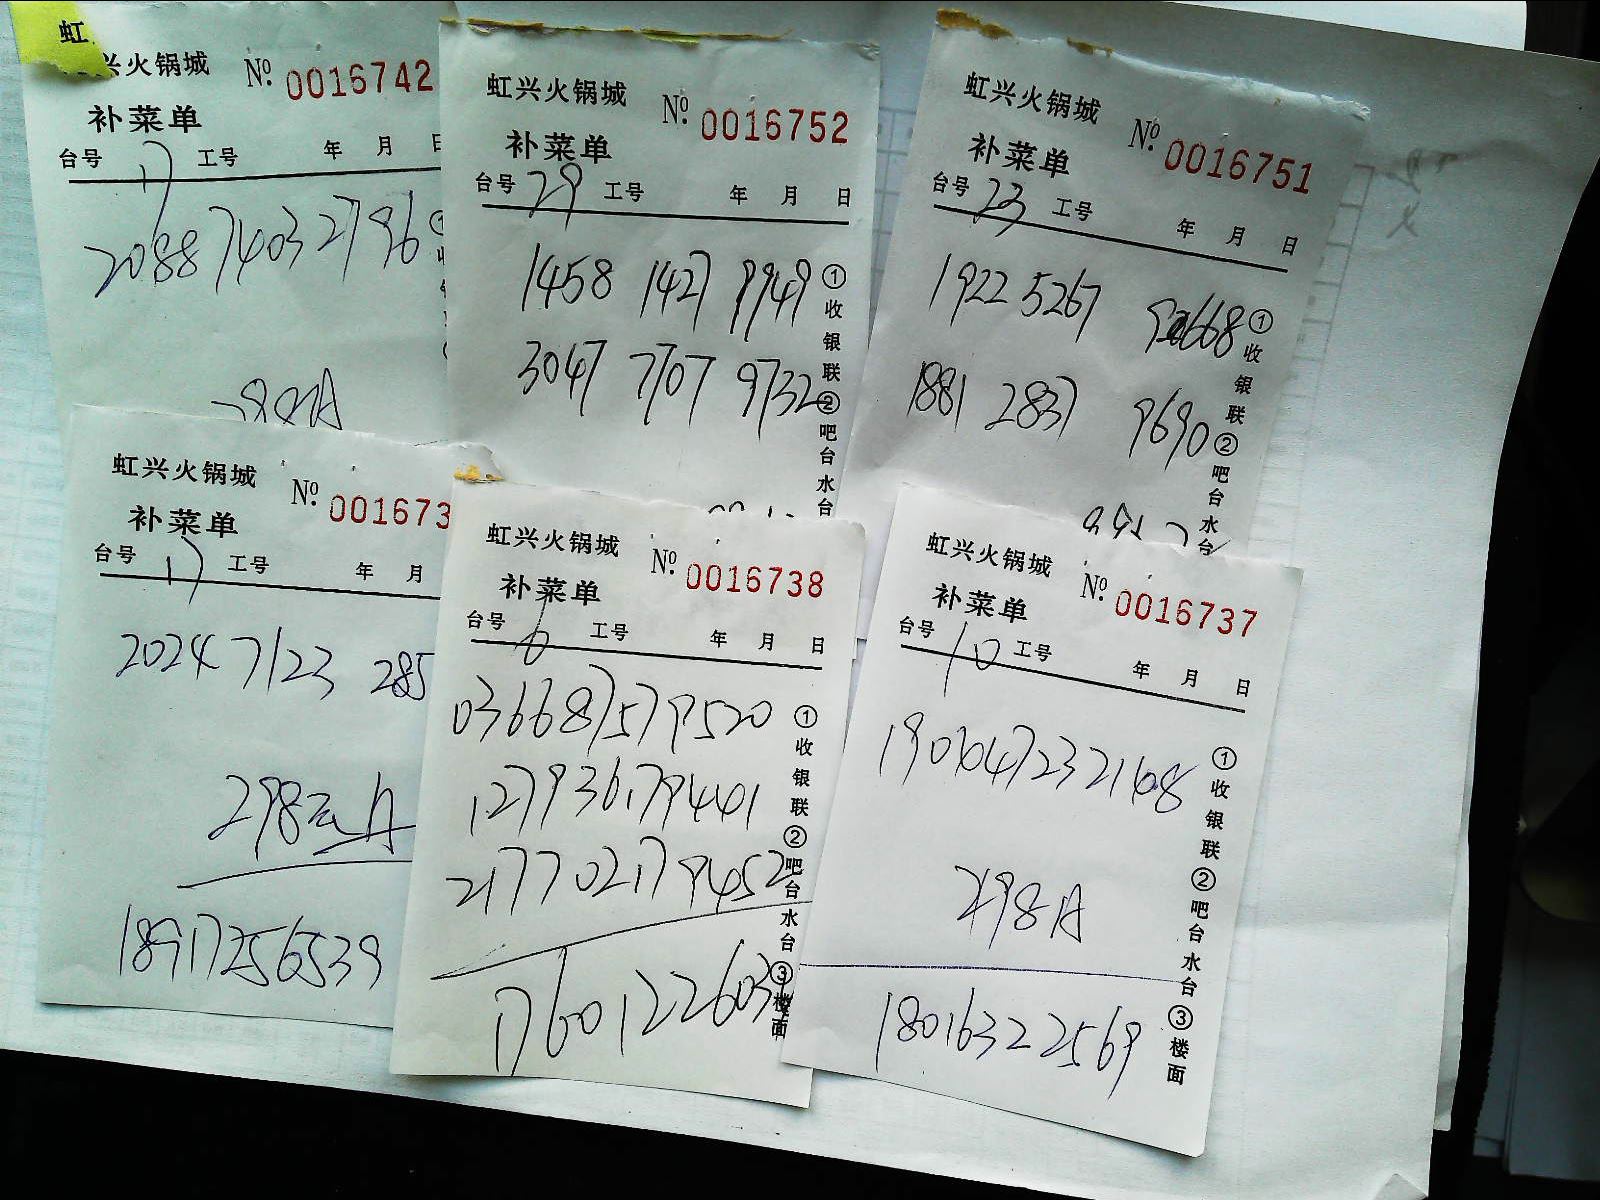 虹
兴火锅城 № 0016742
补菜单
台号 17 工号 年 月
2088 7403 2796
298A
虹兴火锅城 № 0016752
补菜单
台号 29 工号 年 月 日
1458 1427 9949
3047 7707 9732
①收银联②吧台水
虹兴火锅城 № 0016751
补菜单
台号 23 工号 年 月 日
1922 5267 9668
1881 2837 9690
①收银联②吧台水台
虹兴火锅城 № 001673
补菜单
台号 17 工号 年 月
2024 7123 285
298元A
18917256539
虹兴火锅城 № 0016738
补菜单
台号 6 工号 年 月 日
036687579520
127936179441
217702179452
1760122603
①收银联②吧台水台③楼面
虹兴火锅城 № 0016737
补菜单
台号 10 工号 年 月 日
190647232168
298A
18016322569
①收银联②吧台水台③楼面